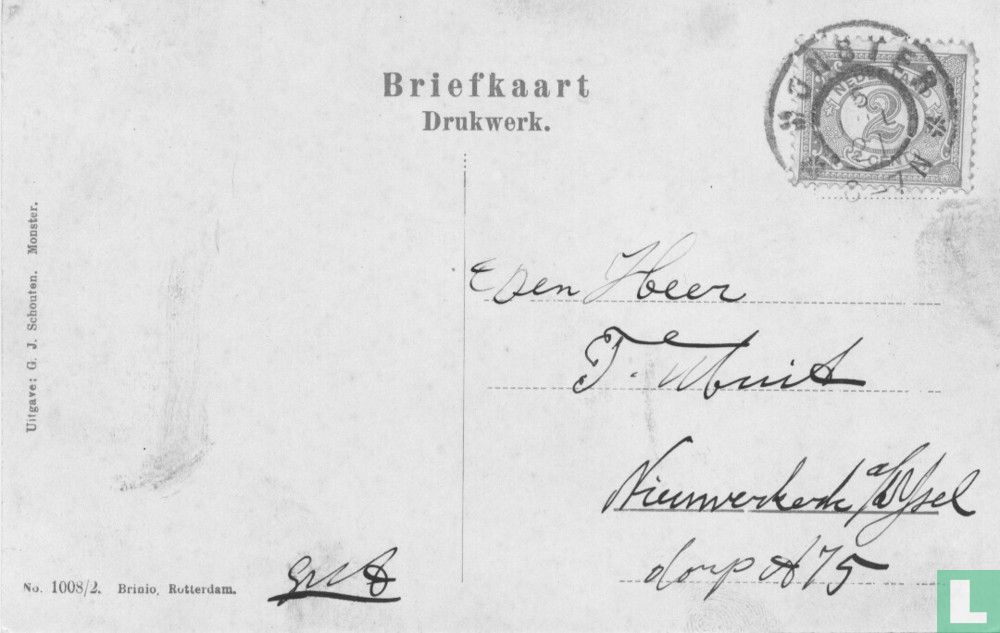 Briefkaart
Drukwerk.
MONSTER
NEDERLAND
2
CENT
Uitgave: G. J. Schouten. Monster.
Den Heer
Nieuwerkerk a/d IJsel
dorp A 75
No. 1008/2. Brinio, Rotterdam.
L